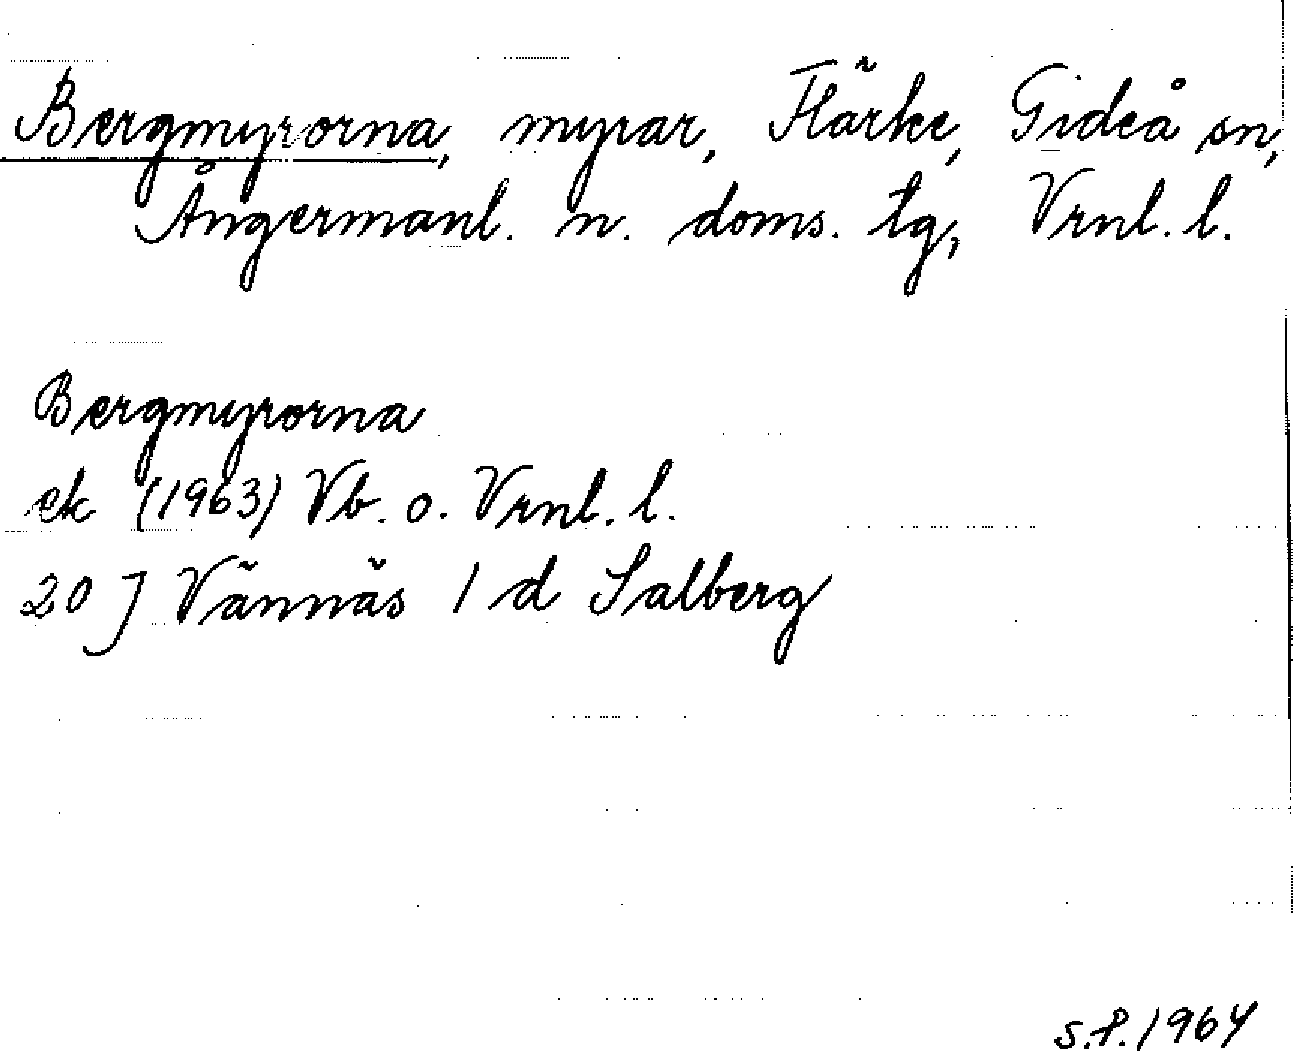 Bergmyrorna, myrar, Flärke, Gideå sn,
Ångermanl. n. doms. tg, Vrnl. l.
Bergmyrorna
ek (1963) Vb. o. Vrnl. l.
20 J Vännäs 1 d Salberg
S.P. 1964